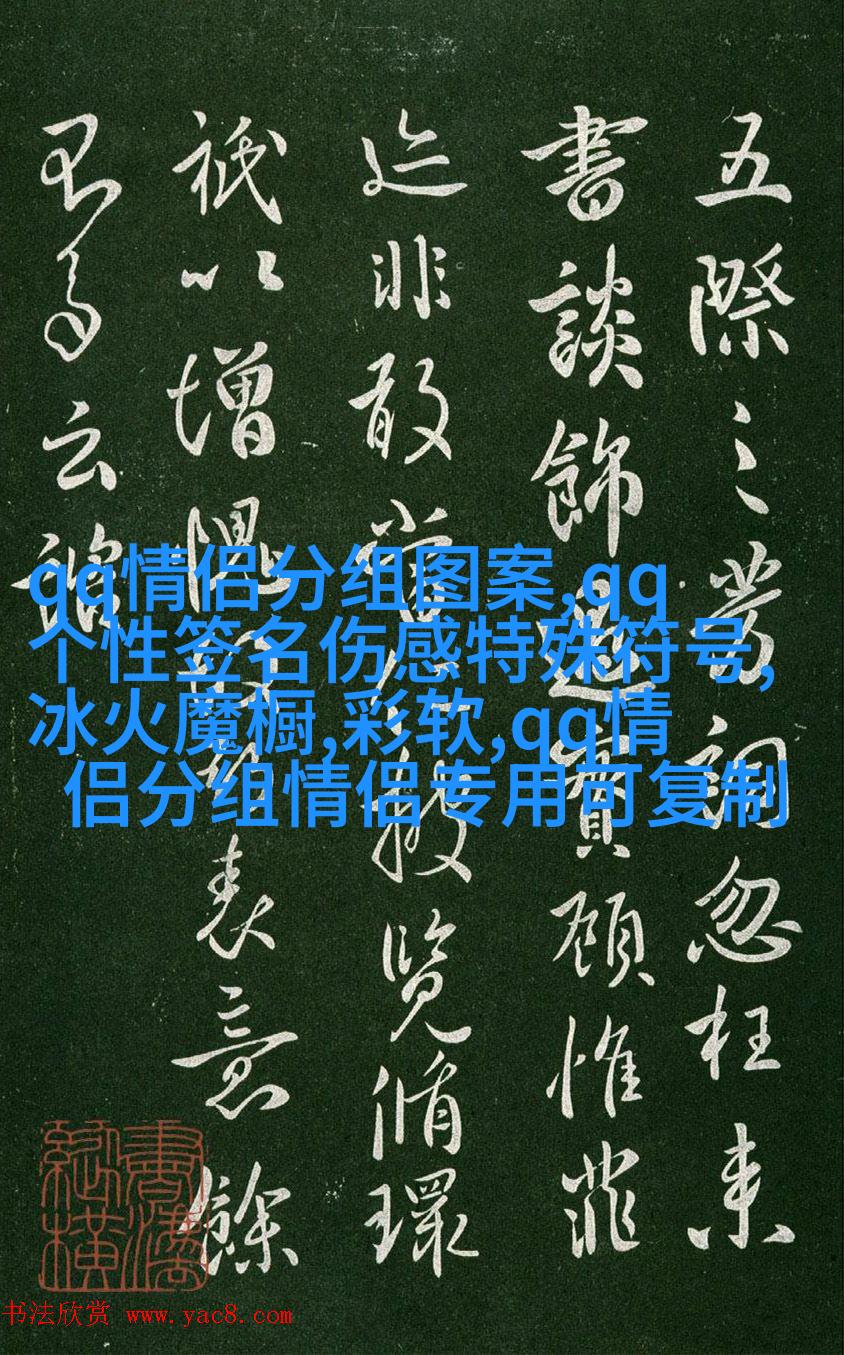 五際之忽枉来
書談飾過實顧惟菲
迹非敢當披覧脩環
祇以增愧表意餘
云
qq情侣分组图案,qq
个性签名伤感特殊符号,
冰火魔橱,彩软,qq情
侣分组情侣专用可复制
书法欣赏 www.yac8.com